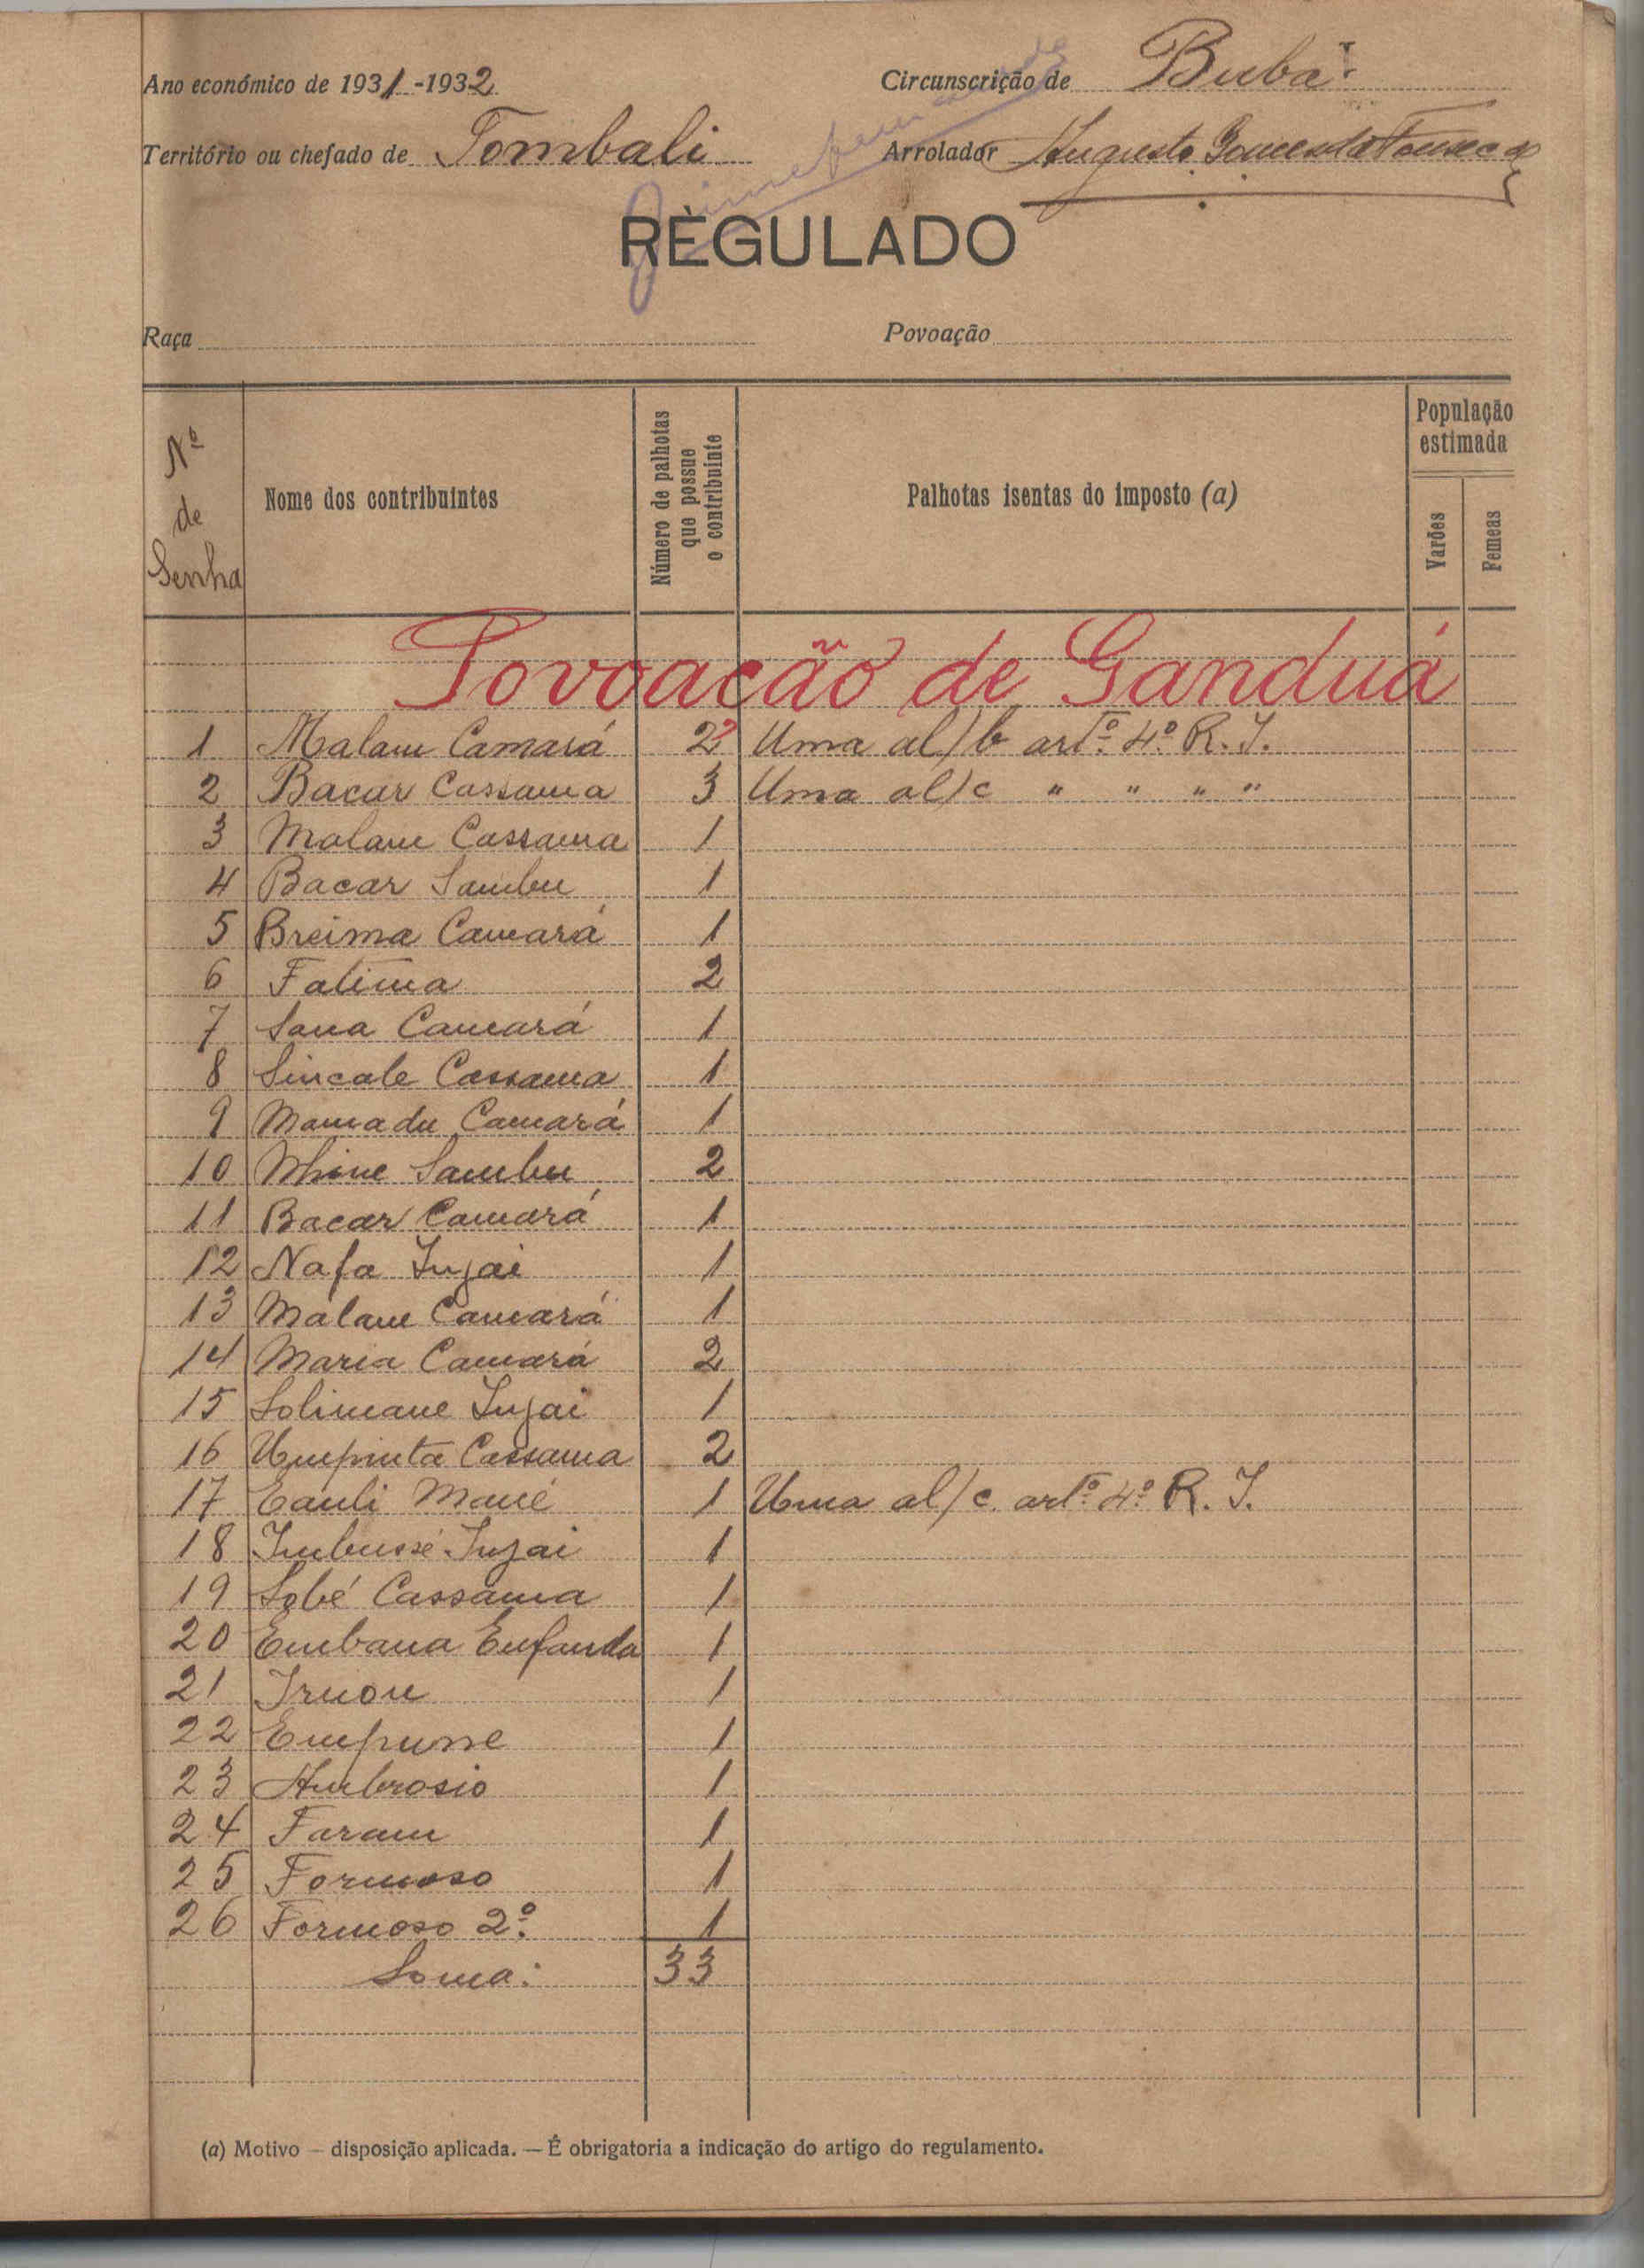 Ano económico de 1931-1932 Circunscrição de Buba
Território ou chefado de Tombali Arrolador Augusto Gomes da Fonseca
REGULADO
Raça Povoação
Nº de Senha
Nome dos contribuintes
Número de palhotas que possue o contribuinte
Palhotas isentas do imposto (a)
População estimada
Varões
Femeas
Povoacão de Ganduá
1 Malam Camará 2 Uma al/b artº 4º R. I.
2 Bacar Cassama 3 Uma al/c " " " "
3 Malam Cassama 1
4 Bacar Sambu 1
5 Breima Camará 1
6 Fatima 2
7 Sana Camará 1
8 Sincale Cassama 1
9 Mamadu Camará 1
10 Sambu 2
11 Bacar Camará 1
12 Nafa Injai 1
13 Malam Camará 1
14 Maria Camará 2
15 Solimane Injai 1
16 Umpinta Cassama 2
17 Mané 1 Uma al/c artº 4º R. I.
18 Imbussé Injai 1
19 Sobé Cassama 1
20 Embana Enfanda 1
21 1
22 Empunne 1
23 Ambrosio 1
24 Faram 1
25 Formoso 1
26 Formoso 2º 1
Soma: 33
(a) Motivo — disposição aplicada. — É obrigatoria a indicação do artigo do regulamento.